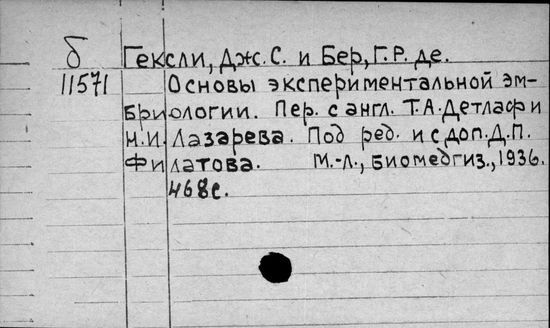 б Гексли, Дж. С. и Бер, Г. Р. де.
11571 Основы экспериментальной эм-
бриологии. Пер. с англ. Т.А. Детлаф и
Н.И. Лазарева. Под ред. и с доп. Д.П.
Филатова. М.-Л., Биомедгиз., 1936.
468с.